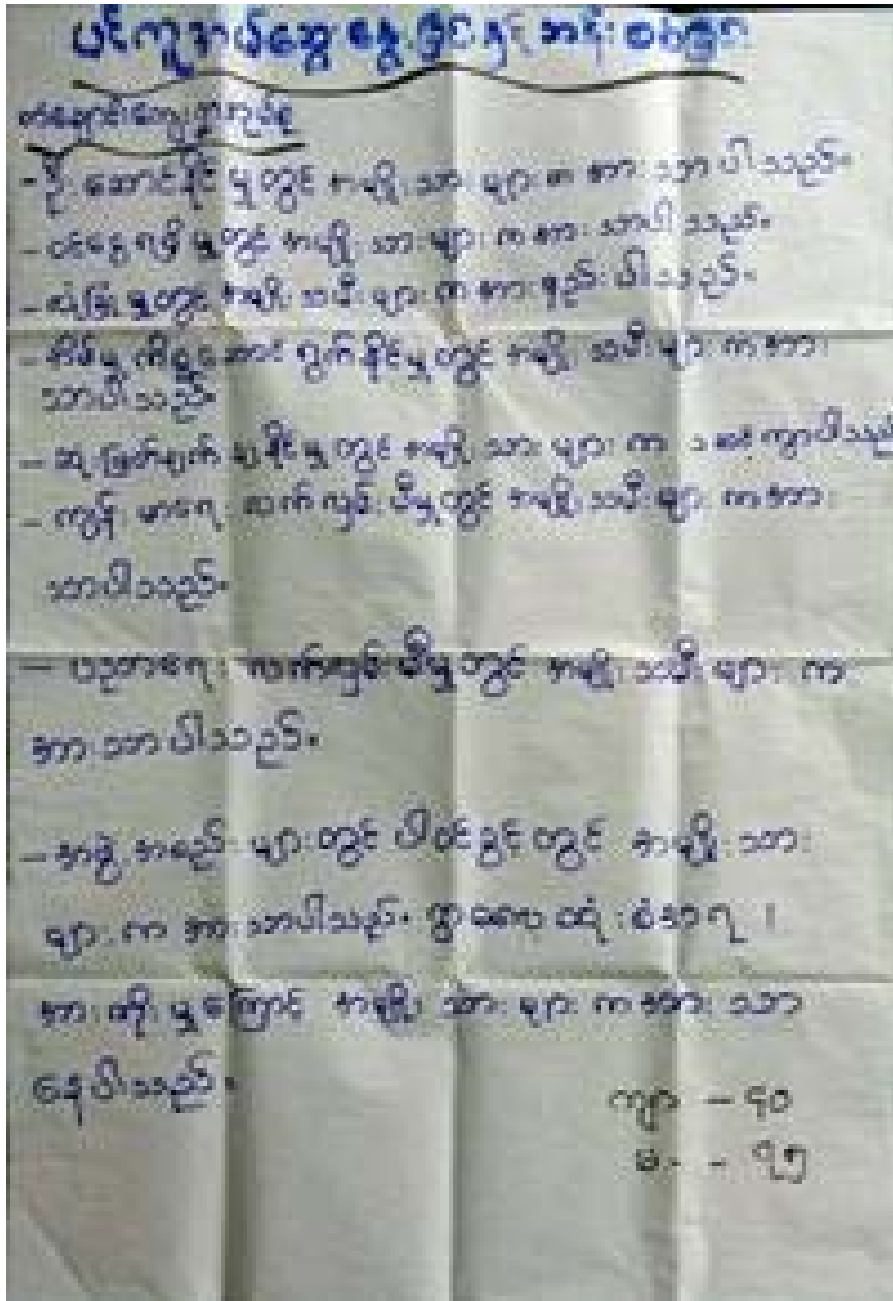 - ဦးဆောင်နိုင်မှုတွင် အမျိုးသားများက အားသာပါသည်။
- ဝင်ငွေရရှိမှုတွင် အမျိုးသားများက အားသာပါသည်။
- လုံခြုံမှုတွင် အမျိုးသမီးများက အားနည်းပါသည်။
- အိမ်မှုကိစ္စဆောင်ရွက်နိုင်မှုတွင် အမျိုးသမီးများကအား
သာပါသည်။
- ဆုံးဖြတ်ချက်ချနိုင်မှုတွင် အမျိုးသားများက
- ကျန်းမာရေးလက်လှမ်းမီမှုတွင် အမျိုးသမီးများကအား
သာပါသည်။
- ပညာရေးလက်လှမ်းမီမှုတွင် အမျိုးသမီးများက
အားသာပါသည်။
- အဖွဲ့အစည်းများတွင် ပါဝင်ခွင့်တွင် အမျိုးသား
များက အားသာပါသည်။ ရွာလေ့ထုံးစံအရ ၊
အားကိုးမှုကြောင့် အမျိုးသားများကအားသာ
နေပါသည်။
ကျား - ၄၀
မ -